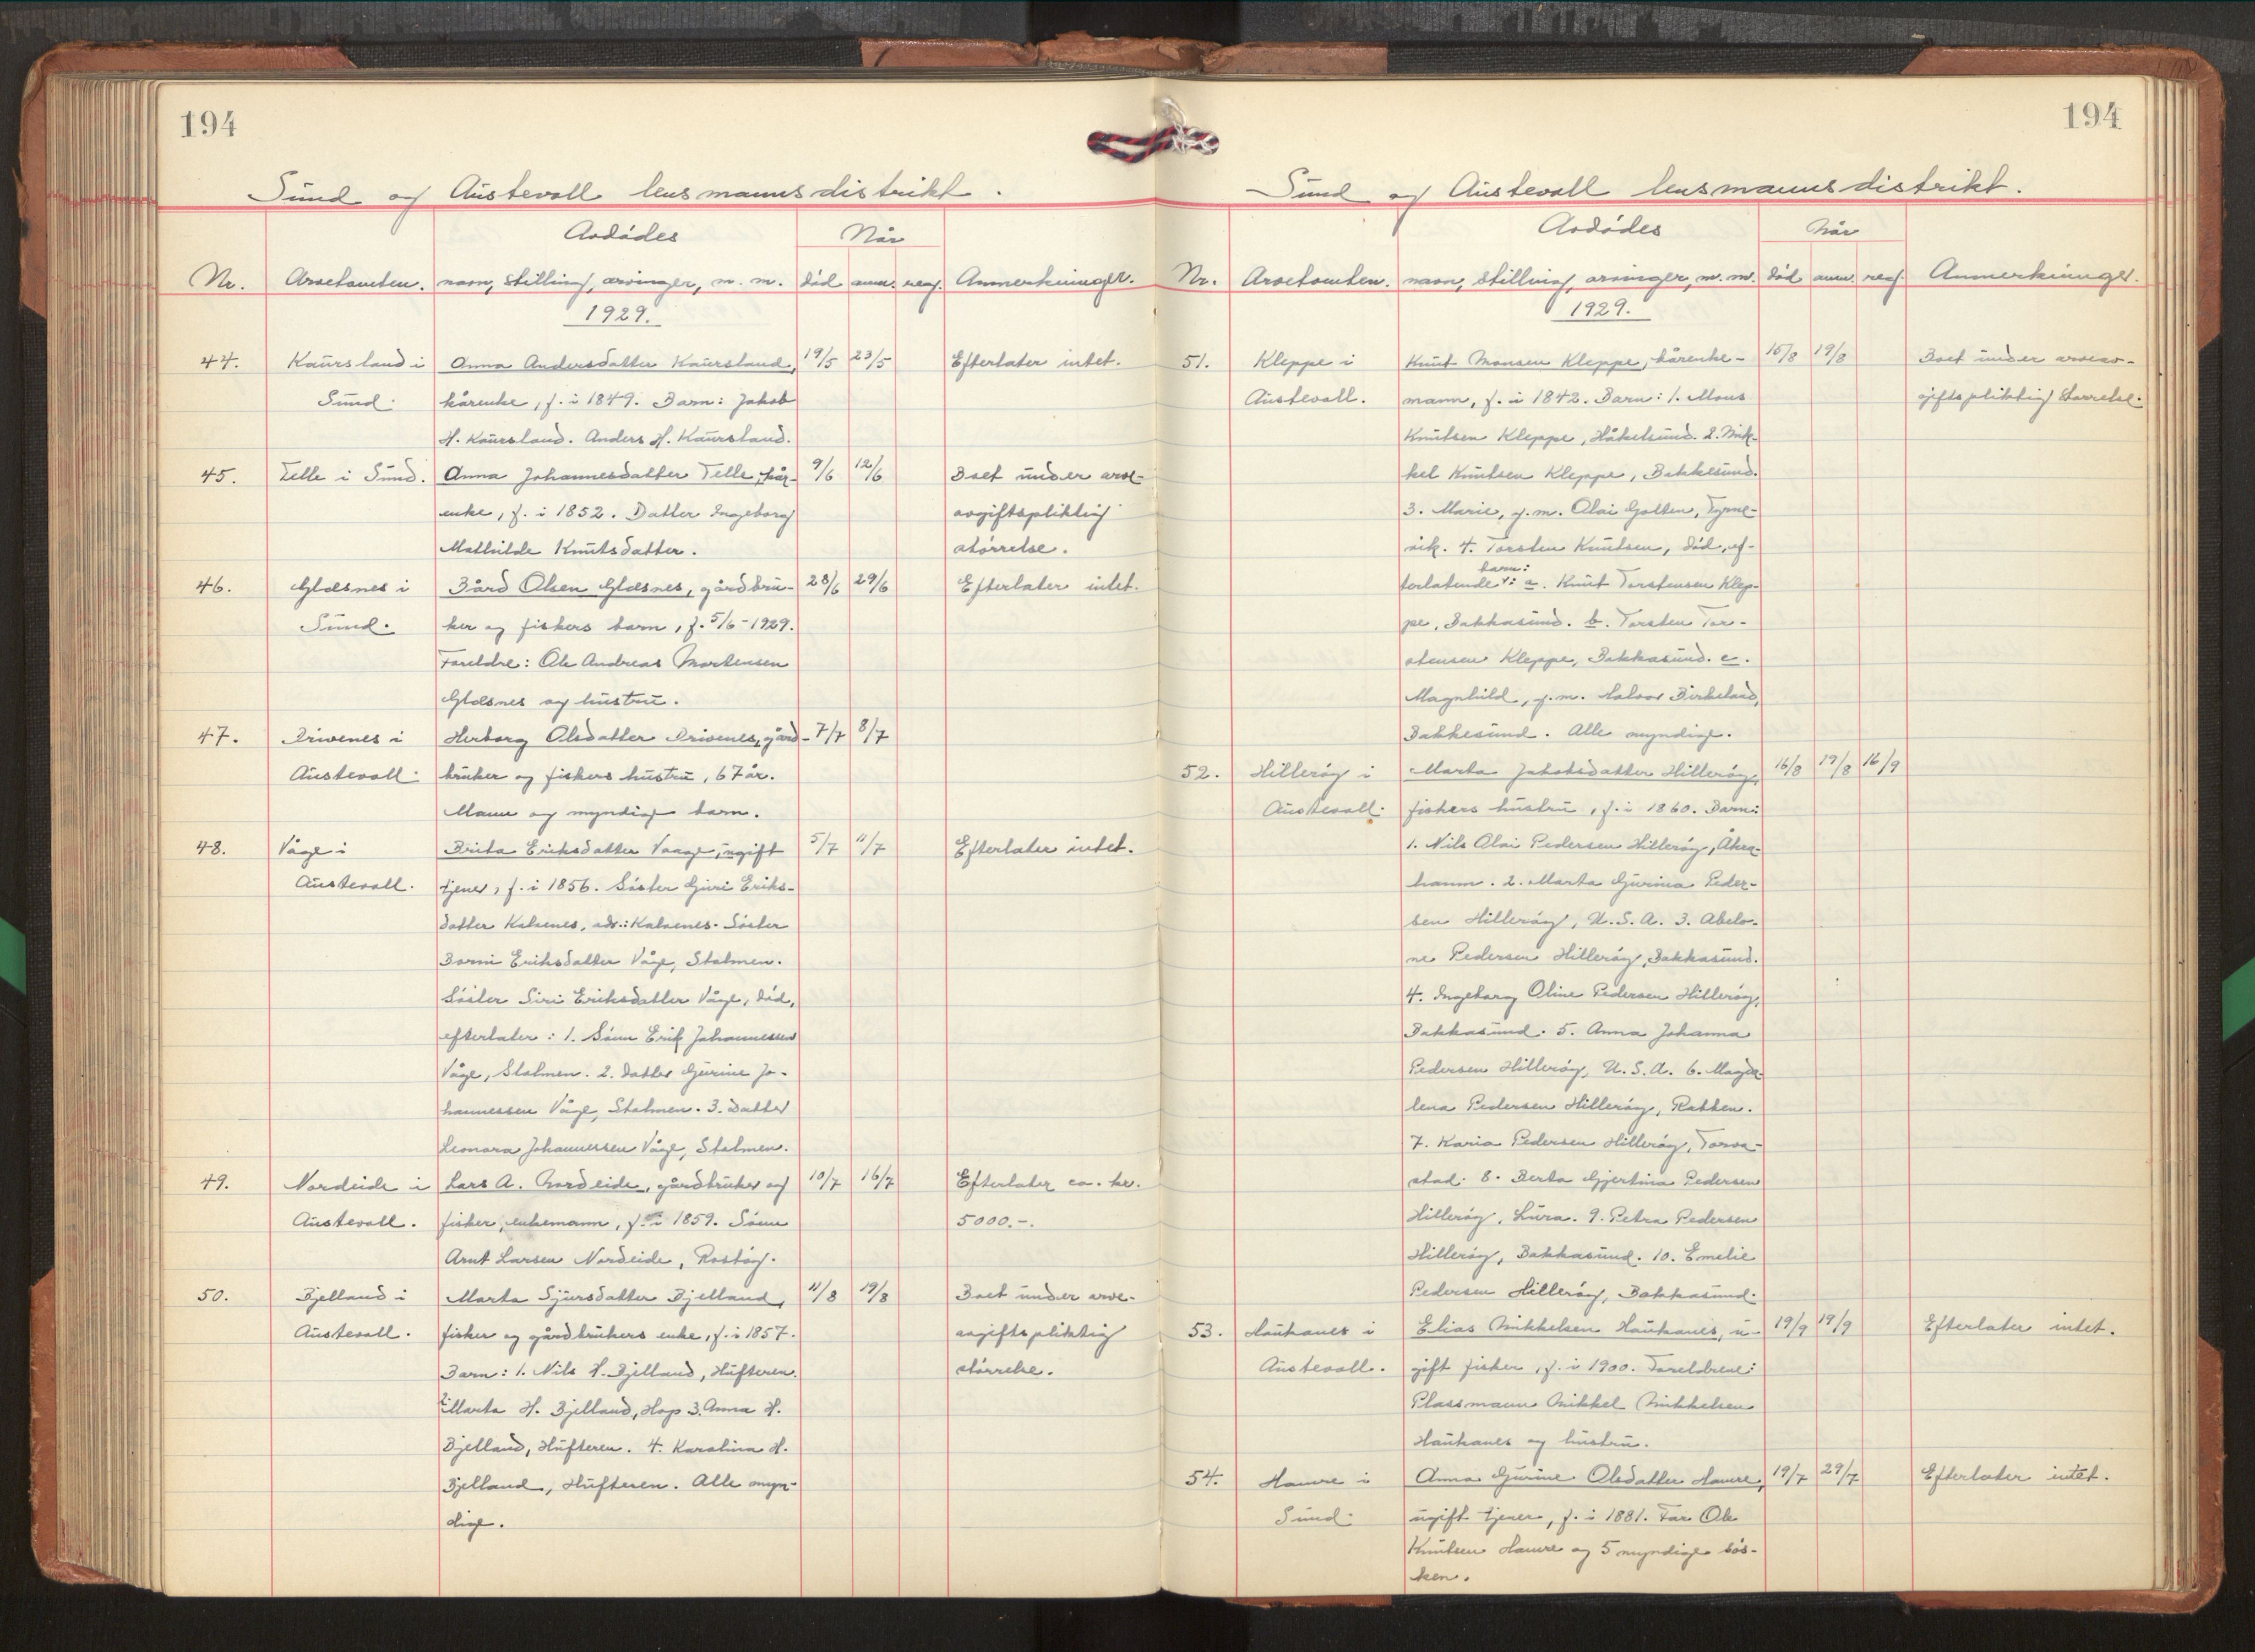 194
Sund og Austevoll lensmannsdistrikt.
Avdødes
Når
Nr. Arvetomten. navn, stilling, arvinger, m. m. død anm. reg. Anmerkninger.
1929.
44. Kaursland i Anna Andersdatter Kaursland, 19/5 23/5 Efterlater intet.
Sund. kårenke, f. i 1849. Barn: Jakob
H. Kaursland. Anders H. Kaursland.
45. Telle i Sund. Anna Johannesdatter Telle, kår- 9/6 12/6 Boet under arve-
enke, f. i 1852. Datter Ingeborg avgiftspliktig
Mathilde Knutsdatter. størrelse.
46. Glæsnes i Bård Olsen Glæsnes, gårdbru- 28/6 29/6 Efterlater intet.
Sund. ker og fiskers barn, f. 5/6-1929.
Foreldre: Ole Andreas Mortensen
Glæsnes og hustru.
47. Drivenes i Herborg Olsdatter Drivenes, gård- 7/7 8/7
Austevoll. bruker og fiskers hustru, 67 år.
Mann og myndige barn.
48. Våge i Brita Eriksdatter Vaage, ugift 5/7 11/7 Efterlater intet.
Austevoll. tjener, f. i 1856. Søster Guri Eriks-
datter Kalvenes, adr.: Kalvenes. Søster
Borni Eriksdatter Våge, Stolmen.
Søster Siri Eriksdatter Våge, død,
efterlater: 1. Sønn Erik Johannessen
Våge, Stolmen. 2. Datter Gurine Jo-
hannessen Våge, Stolmen. 3. Datter
Leonora Johannessen Våge, Stolmen.
49. Nordeide i Lars A. Nordeide, gårdbruker og 10/7 16/7 Efterlater ca. kr.
Austevoll. fisker, enkemann, f. i 1859. Sønn 5000.-.
Arnt Larsen Nordeide, Rostøy.
50. Bjelland i Marta Sjursdatter Bjelland, 11/8 19/8 Boet under arve-
Austevoll. fisker og gårdbrukers enke, f. i 1857. avgiftspliktig
Barn: 1. Nils H. Bjelland, Hufteren. størrelse.
2. Marta H. Bjelland, Hop 3. Anna H.
Bjelland, Hufteren. 4. Karolina H.
Bjelland, Hufteren. Alle myn-
dige.
194
Sund og Austevoll lensmannsdistrikt.
Avdødes
Når
Nr. Arvetomten. navn, stilling, arvinger, m. m. død anm. reg. Anmerkninger.
1929.
51. Kleppe i Knut Monsen Kleppe, kårenke- 15/8 19/8 Boet under arveav-
Austevoll. mann, f. i 1842. Barn: 1. Mons giftspliktig størrelse.
Knutsen Kleppe, Håkelsund. 2. Mik-
kel Knutsen Kleppe, Bakkesund.
3. Marie, g. m. Olai Golten,
vik. 4. Torsten Knutsen, død, ef-
barn:
terlatende: a. Knut Torstensen Klep-
pe, Bakkasund. b. Torsten Tor-
stensen Kleppe, Bakkasund. c.
Magnhild, g. m. Halvor Birkeland,
Bakkesund. Alle myndige.
52. Hillerøy i Marta Jakobsdatter Hillerøy, 16/8 19/8 16/9
Austevoll. fiskers hustru, f. i 1860. Barn:
1. Nils Olai Pedersen Hillerøy, Åkra-
hamn. 2. Marta Gurina Peder-
sen Hillerøy, U.S.A. 3. Abelo-
ne Pedersen Hillerøy, Bakkasund.
4. Ingeborg Oline Pedersen Hillerøy,
Bakkasund. 5. Anna Johanna
Pedersen Hillerøy, U.S.A. 6. Magda-
lena Pedersen Hillerøy,
7. Karia Pedersen Hillerøy, Torva-
stad. 8. Berta Gjertina Pedersen
Hillerøy, Lura. 9. Petra Pedersen
Hillerøy, Bakkasund. 10. Emelie
Pedersen Hillerøy, Bakkasund.
53. Haukanes i Elias Mikkelsen Haukanes, u- 19/9 19/9 Efterlater intet.
Austevoll. gift fisker, f. i 1900. Foreldrene:
Plassmann Mikkel Mikkelsen
Haukanes og hustru.
54. Hamre i Anna Gurine Olsdatter Hamre, 19/7 29/7 Efterlater intet.
Sund. ugift tjener, f. i 1881. Far Ole
Knutsen Hamre og 5 myndige søs-
ken.